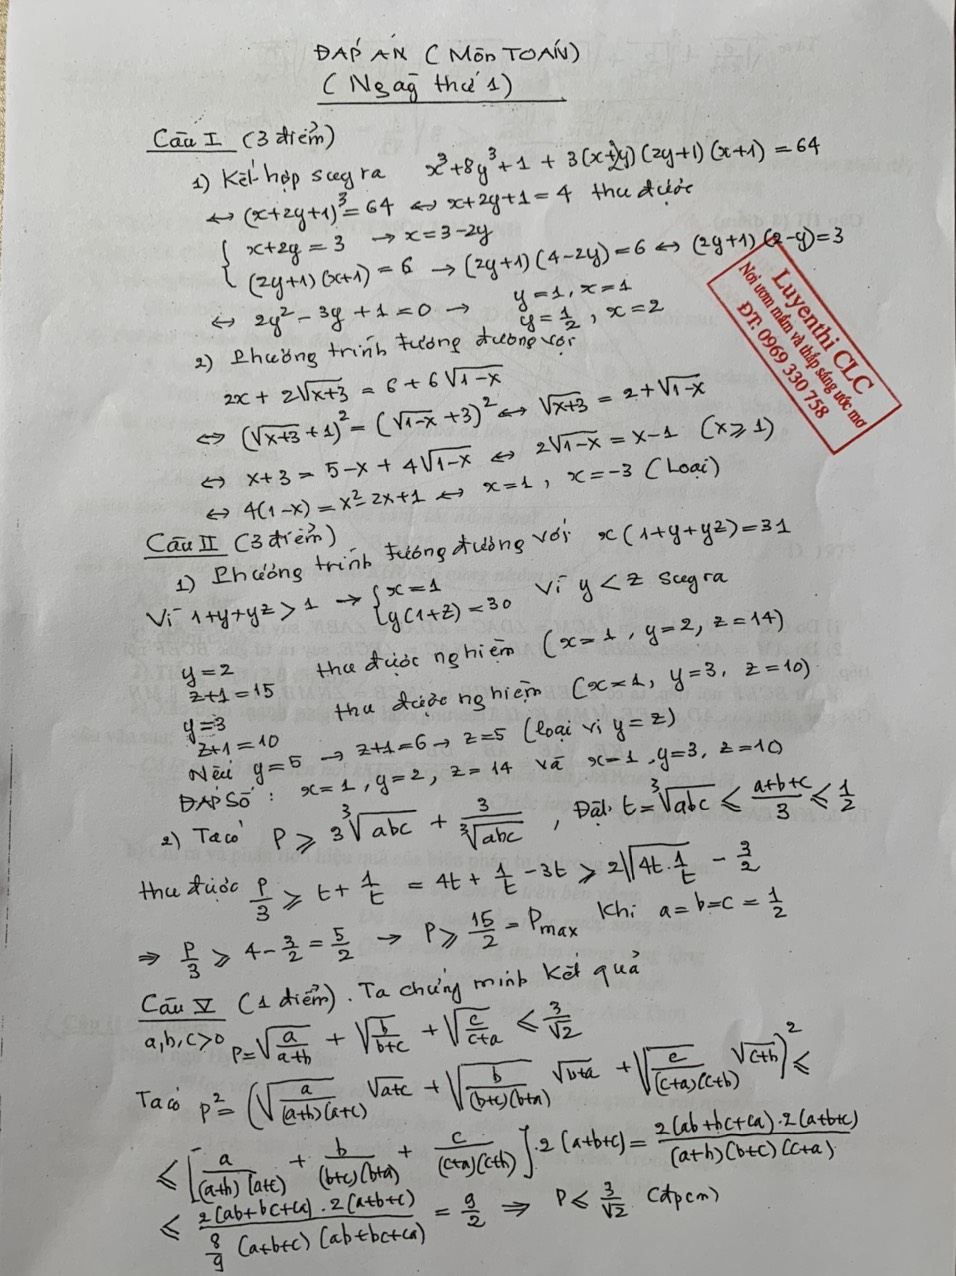 ĐÁP ÁN (Môn TOÁN)
(Ngày thứ 1)
Câu I (3 điểm)
1) Kết hợp suy ra x³+8y³+1 + 3(x+2y)(2y+1)(x+1) = 64
⇔ (x+2y+1)³ = 64 ⇔ x+2y+1 = 4 thu được
{ x+2y = 3 → x = 3-2y
{ (2y+1)(x+1) = 6 → (2y+1)(4-2y) = 6 ⇔ (2y+1)(2-y) = 3
⇔ 2y² - 3y + 1 = 0 → y = 1, x = 1
y = 1/2, x = 2
2) Phương trình tương đương với
2x + 2√(x+3) = 6 + 6√(1-x)
⇔ (√(x+3) + 1)² = (√(1-x) + 3)² ⇔ √(x+3) = 2 + √(1-x)
⇔ x+3 = 5-x + 4√(1-x) ⇔ 2√(1-x) = x-1 (x ≥ 1)
⇔ 4(1-x) = x² 2x+1 ⇔ x=1, x=-3 (Loại)
Luyenthi CLC
Nơi ươm mầm và thắp sáng ước mơ
ĐT: 0969 330 758
Câu II (3 điểm)
1) Phương trình tương đương với x(1+y+yz) = 31
Vì 1+y+yz > 1 → { x=1
{ y(1+z) = 30 Vì y < z suy ra
y=2
z+1=15 thu được nghiệm (x=1, y=2, z=14)
y=3
z+1=10 thu được nghiệm (x=1, y=3, z=10)
Nếu y=5 → z+1=6 → z=5 (loại vì y=z)
ĐÁP SỐ: x=1, y=2, z=14 và x=1, y=3, z=10
2) Ta có P ≥ 3∛(abc) + 3/∛(abc), Đặt t = ∛(abc) ≤ (a+b+c)/3 ≤ 1/2
thu được P/3 ≥ t + 1/t = 4t + 1/t - 3t ≥ 2√(4t·1/t) - 3/2
⇒ P/3 ≥ 4 - 3/2 = 5/2 → P ≥ 15/2 = Pmax khi a=b=c=1/2
Câu V (1 điểm). Ta chứng minh kết quả
a,b,c>0 P = √(a/(a+b)) + √(b/(b+c)) + √(c/(c+a)) ≤ 3/√2
Ta có P² = (√(a/((a+b)(a+c))) √(a+c) + √(b/((b+c)(b+a))) √(b+a) + √(c/((c+a)(c+b))) √(c+b))² ≤
≤ [a/((a+b)(a+c)) + b/((b+c)(b+a)) + c/((c+a)(c+b))].2(a+b+c) = 2(ab+bc+ca).2(a+b+c)/((a+b)(b+c)(c+a))
≤ 2(ab+bc+ca).2(a+b+c)/(8/9 (a+b+c)(ab+bc+ca)) = 9/2 ⇒ P ≤ 3/√2 (đpcm)